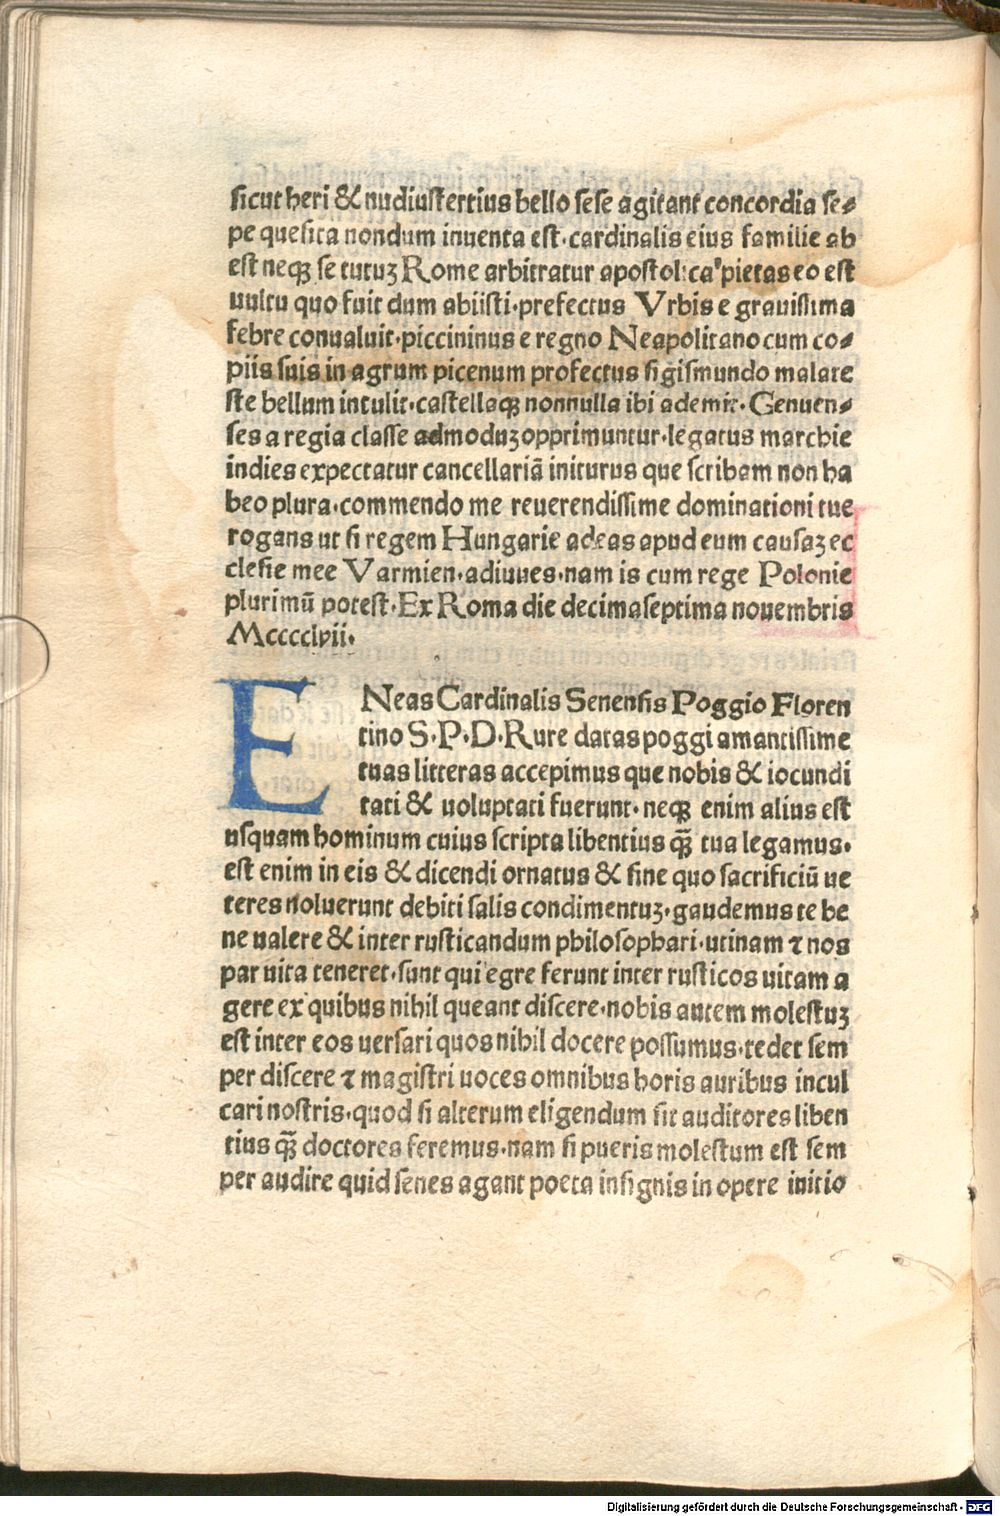 sicut heri & nudiustertius bello sese agitant concordia se⸗
pe quesita nondum inuenta est·cardinalis eius familie ab
est neqꝫ se tutuꝫ Rome arbitratur apostolica pietas eo est
uultu quo fuit dum abiisti·prefectus Vrbis e grauissima
febre conualuit·piccininus e regno Neapolitano cum co⸗
piis suis in agrum picenum profectus sigismundo malate
ste bellum intulit·castellaqꝫ nonnulla ibi ademit·Genuen⸗
ses a regia classe admoduꝫ opprimuntur·legatus marchie
indies expectatur cancellariā initurus que scribam non ha
beo plura·commendo me reuerendissime dominationi tue
rogans ut si regem Hungarie adeas apud eum causaꝫ ec
clesie mee Varmien·adiuues·nam is cum rege Polonie
plurimū potest·Ex Roma die decimaseptima nouembris
Mcccclvii·
ENeas Cardinalis Senensis Poggio Floren
tino S·P·D·Rure datas poggi amantissime
tuas litteras accepimus que nobis & iocundi
tati & uoluptati fuerunt·neqꝫ enim alius est
usquam hominum cuius scripta libentius qꝫ̄ tua legamus·
est enim in eis & dicendi ornatus & sine quo sacrificiū ue
teres noluerunt debiti salis condimentuꝫ·gaudemus te be
ne ualere & inter rusticandum philosophari·utinam ⁊ nos
par uita teneret·sunt qui egre ferunt inter rusticos uitam a
gere ex quibus nihil queant discere·nobis autem molestuꝫ
est inter eos uersari quos nihil docere possumus·tedet sem
per discere ⁊ magistri uoces omnibus horis auribus incul
cari nostris·quod si alterum eligendum sit auditores liben
tius qꝫ̄ doctores feremus·nam si pueris molestum est sem
per audire quid senes agant poeta insignis in opere initio
Digitalisierung gefördert durch die Deutsche Forschungsgemeinschaft - DFG